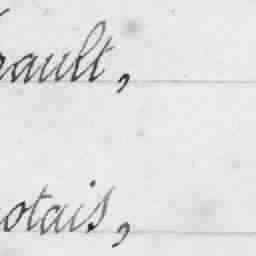 rault,
otais,